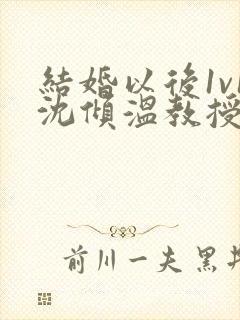 結婚以後1v1
沈傾溫教授
前川一夫 黑